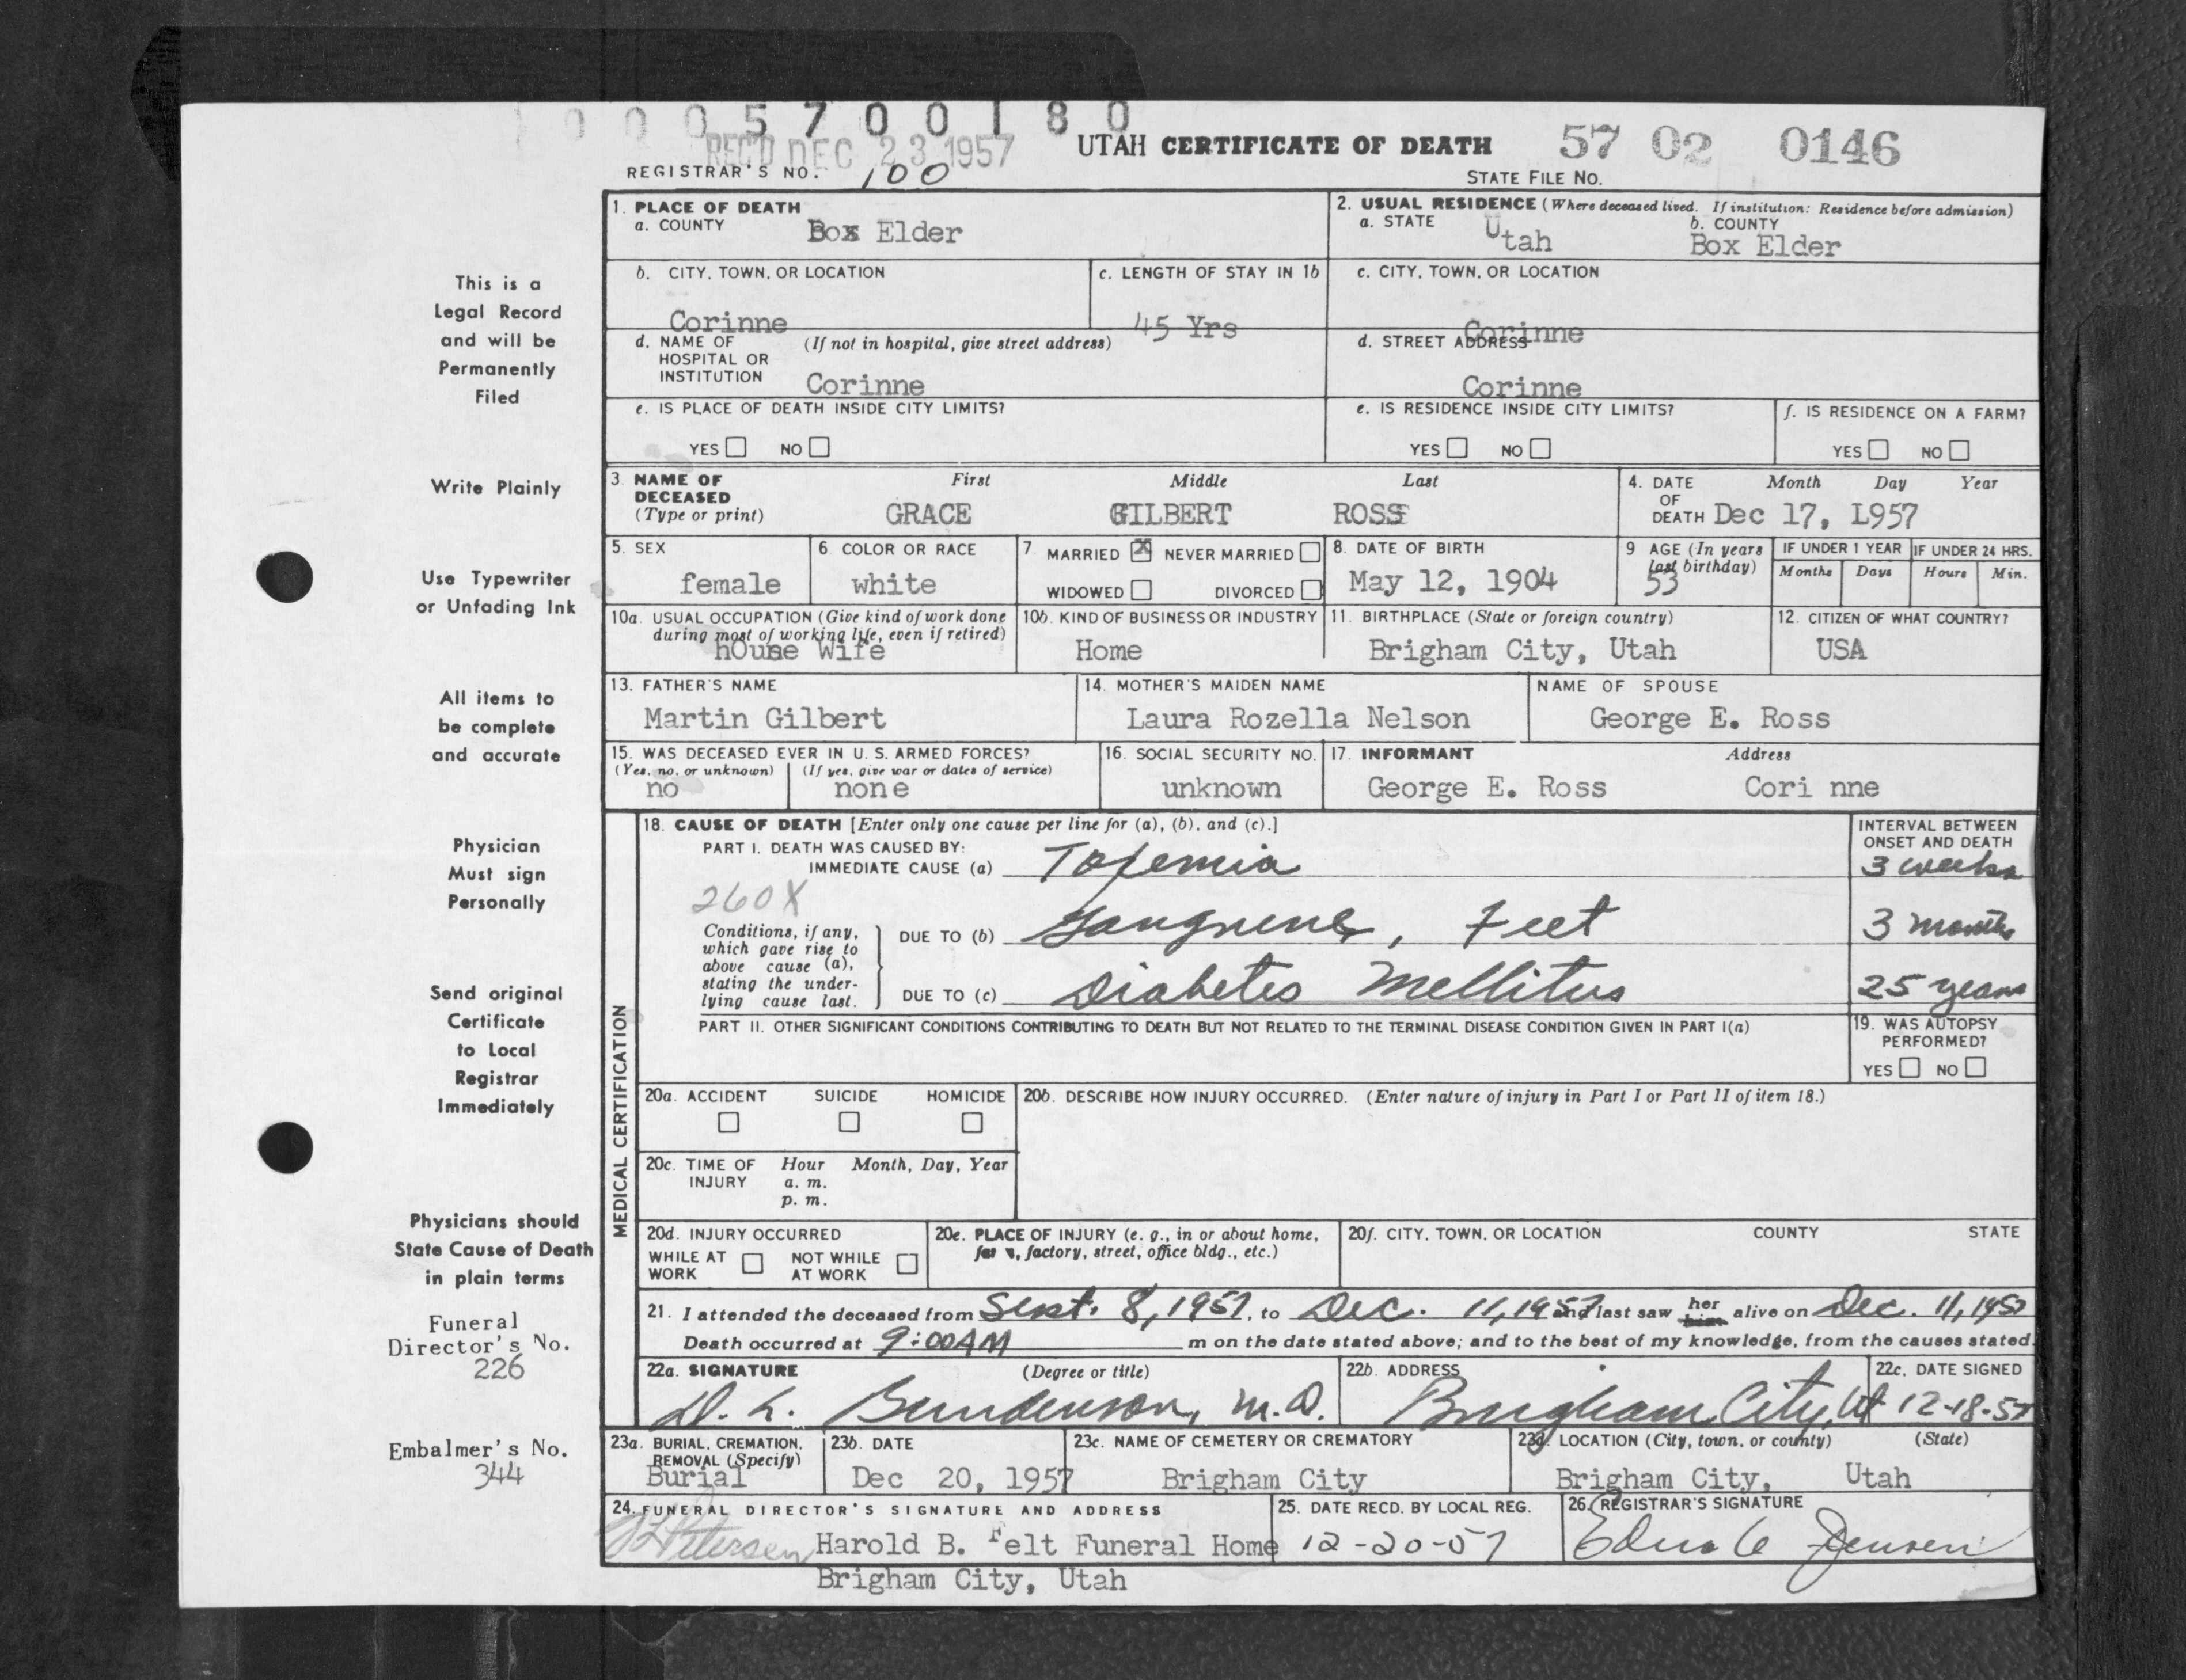 0 0 0 5 7 0 0 1 8 0
REC'D DEC 23 1957
UTAH CERTIFICATE OF DEATH 57 02 0146
REGISTRAR'S NO. 100 STATE FILE NO.
1. PLACE OF DEATH
a. COUNTY Box Elder
2. USUAL RESIDENCE (Where deceased lived. If institution: Residence before admission)
a. STATE Utah b. COUNTY Box Elder
b. CITY, TOWN, OR LOCATION Corinne
c. LENGTH OF STAY IN 1b 45 Yrs
c. CITY, TOWN, OR LOCATION Corinne
d. NAME OF HOSPITAL OR INSTITUTION (If not in hospital, give street address) Corinne
d. STREET ADDRESS Corinne
e. IS PLACE OF DEATH INSIDE CITY LIMITS?
YES NO
e. IS RESIDENCE INSIDE CITY LIMITS?
YES NO
f. IS RESIDENCE ON A FARM?
YES NO
3. NAME OF DECEASED (Type or print) First Middle Last
GRACE GILBERT ROSS
4. DATE OF DEATH Month Day Year
Dec 17, L957
5. SEX female
6. COLOR OR RACE white
7. MARRIED X NEVER MARRIED
WIDOWED DIVORCED
8. DATE OF BIRTH May 12, 1904
9 AGE (In years last birthday) 53
IF UNDER 1 YEAR Months Days
IF UNDER 24 HRS. Hours Min.
10a. USUAL OCCUPATION (Give kind of work done during most of working life, even if retired)
hOuse Wife
10b. KIND OF BUSINESS OR INDUSTRY Home
11. BIRTHPLACE (State or foreign country) Brigham City, Utah
12. CITIZEN OF WHAT COUNTRY? USA
13. FATHER'S NAME Martin Gilbert
14. MOTHER'S MAIDEN NAME Laura Rozella Nelson
NAME OF SPOUSE George E. Ross
15. WAS DECEASED EVER IN U. S. ARMED FORCES?
(Yes, no, or unknown) no (If yes, give war or dates of service) none
16. SOCIAL SECURITY NO. unknown
17. INFORMANT George E. Ross Address Cori nne
MEDICAL CERTIFICATION
18. CAUSE OF DEATH [Enter only one cause per line for (a), (b), and (c).]
INTERVAL BETWEEN ONSET AND DEATH
PART I. DEATH WAS CAUSED BY:
IMMEDIATE CAUSE (a) Toxemia 3 weeks
260X
Conditions, if any, which gave rise to above cause (a), stating the underlying cause last.
DUE TO (b) Gangrene, Feet 3 months
DUE TO (c) Diabetes Mellitus 25 years
PART II. OTHER SIGNIFICANT CONDITIONS CONTRIBUTING TO DEATH BUT NOT RELATED TO THE TERMINAL DISEASE CONDITION GIVEN IN PART I(a)
19. WAS AUTOPSY PERFORMED?
YES NO
20a. ACCIDENT SUICIDE HOMICIDE
20b. DESCRIBE HOW INJURY OCCURRED. (Enter nature of injury in Part I or Part II of item 18.)
20c. TIME OF INJURY Hour Month, Day, Year
a. m.
p. m.
20d. INJURY OCCURRED
WHILE AT WORK NOT WHILE AT WORK
20e. PLACE OF INJURY (e. g., in or about home, factory, street, office bldg., etc.)
20f. CITY, TOWN, OR LOCATION COUNTY STATE
21. I attended the deceased from Sept. 8, 1957, to Dec. 11, 1957 and last saw her him alive on Dec. 11, 1957
Death occurred at 9:00AM m on the date stated above; and to the best of my knowledge, from the causes stated.
22a. SIGNATURE (Degree or title)
D. L. Bunderson, M.D.
22b. ADDRESS Brigham City, Ut
22c. DATE SIGNED 12-18-57
23a. BURIAL, CREMATION, REMOVAL (Specify) Burial
23b. DATE Dec 20, 1957
23c. NAME OF CEMETERY OR CREMATORY Brigham City
23d. LOCATION (City, town, or county) (State) Brigham City, Utah
24. FUNERAL DIRECTOR'S SIGNATURE AND ADDRESS
Petersen Harold B. Felt Funeral Home
Brigham City, Utah
25. DATE RECD. BY LOCAL REG. 12-20-57
26. REGISTRAR'S SIGNATURE
Jensen
This is a
Legal Record
and will be
Permanently
Filed
Write Plainly
Use Typewriter
or Unfading Ink
All items to
be complete
and accurate
Physician
Must sign
Personally
Send original
Certificate
to Local
Registrar
Immediately
Physicians should
State Cause of Death
in plain terms
Funeral
Director's No.
226
Embalmer's No.
344